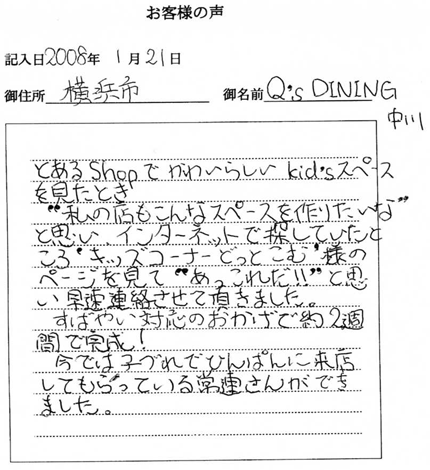 お客様の声
記入日2008年 1月21日
御住所 横浜市 御名前 Q's DINING
中川
とあるShopでかわいらしいkid'sスペース
を見たとき
"私の店もこんなスペースを作りたいな"
と思い、インターネットで探していたと
ころ"キッズコーナーどっとこむ"様の
ページを見て"あっこれだ!!"と思
い早速連絡させて頂きました。
すばやい対応のおかげで約2週
間で完成!
今では子づれでひんぱんに来店
してもらっている常連さんができ
ました。